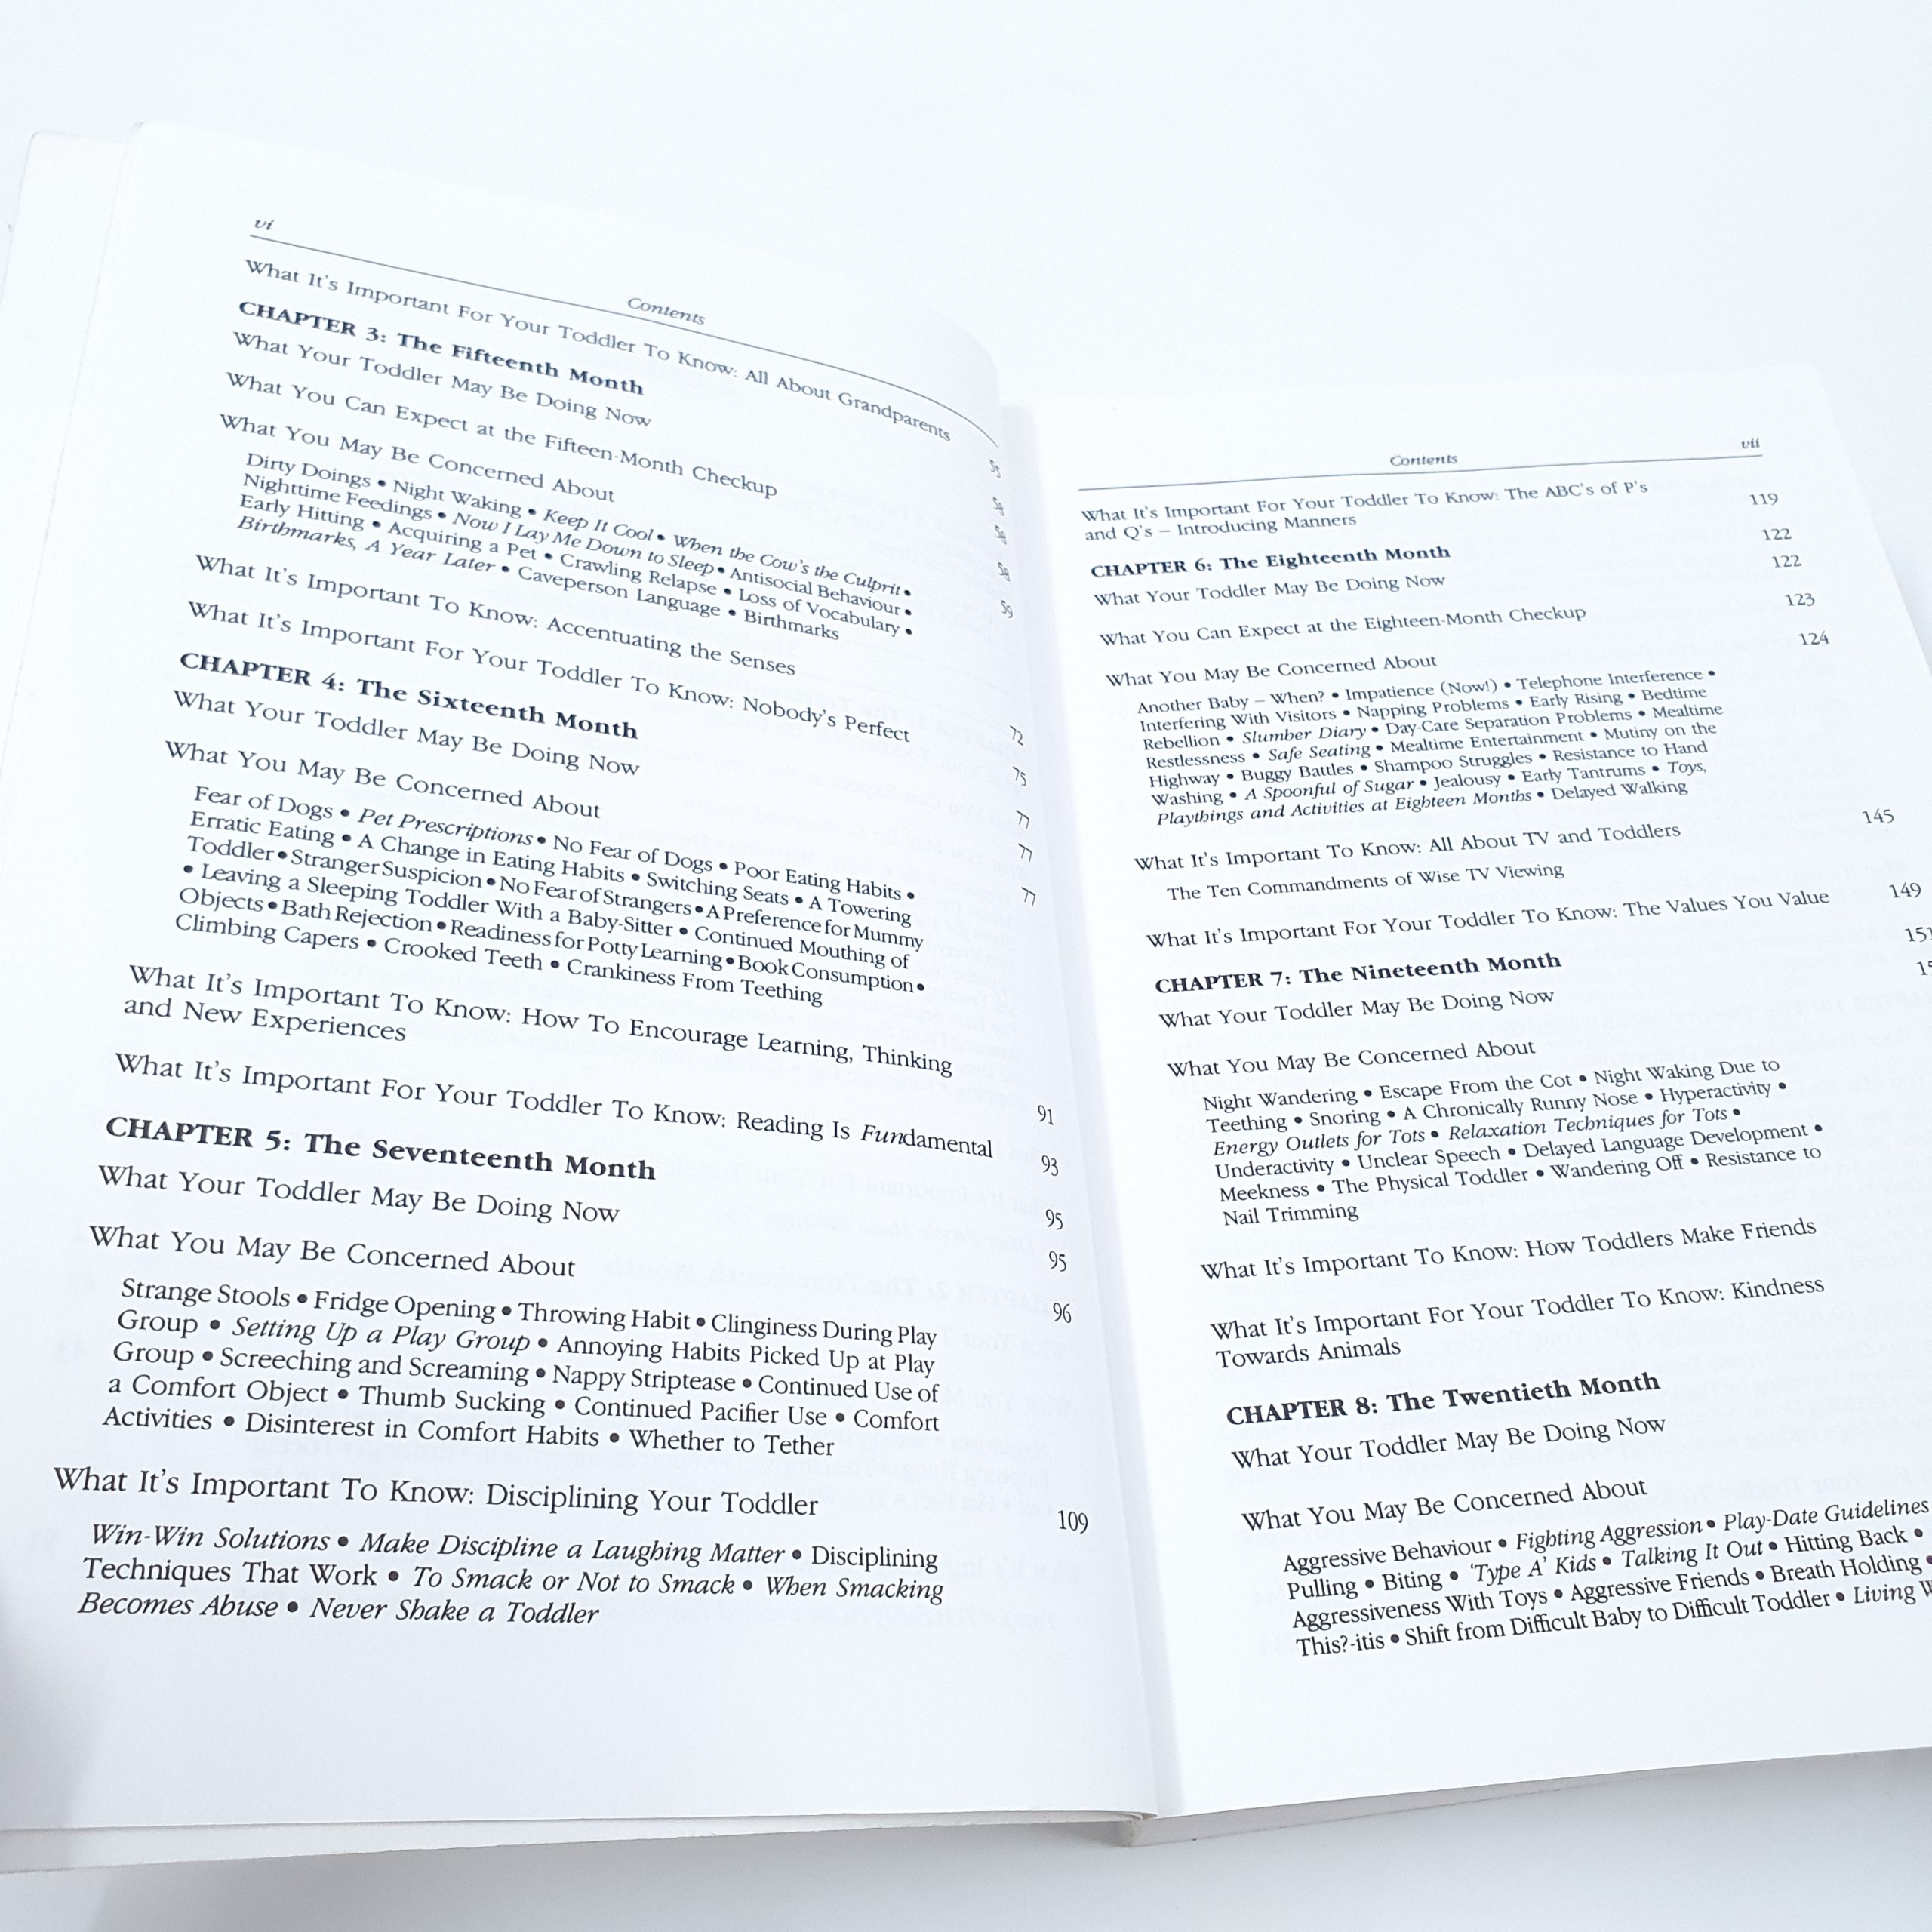 vi
Contents
What It's Important For Your Toddler To Know: All About Grandparents 53
CHAPTER 3: The Fifteenth Month 54
What Your Toddler May Be Doing Now 54
What You Can Expect at the Fifteen-Month Checkup 58
What You May Be Concerned About 59
Dirty Doings • Night Waking • Keep It Cool • When the Cow's the Culprit •
Nighttime Feedings • Now I Lay Me Down to Sleep • Antisocial Behaviour •
Early Hitting • Acquiring a Pet • Crawling Relapse • Loss of Vocabulary •
Birthmarks, A Year Later • Caveperson Language • Birthmarks
What It's Important To Know: Accentuating the Senses 72
What It's Important For Your Toddler To Know: Nobody's Perfect 75
CHAPTER 4: The Sixteenth Month 77
What Your Toddler May Be Doing Now 77
What You May Be Concerned About 77
Fear of Dogs • Pet Prescriptions • No Fear of Dogs • Poor Eating Habits •
Erratic Eating • A Change in Eating Habits • Switching Seats • A Towering
Toddler • Stranger Suspicion • No Fear of Strangers • A Preference for Mummy
• Leaving a Sleeping Toddler With a Baby-Sitter • Continued Mouthing of
Objects • Bath Rejection • Readiness for Potty Learning • Book Consumption •
Climbing Capers • Crooked Teeth • Crankiness From Teething
What It's Important To Know: How To Encourage Learning, Thinking
and New Experiences 91
What It's Important For Your Toddler To Know: Reading Is Fundamental 93
CHAPTER 5: The Seventeenth Month 95
What Your Toddler May Be Doing Now 95
What You May Be Concerned About 96
Strange Stools • Fridge Opening • Throwing Habit • Clinginess During Play
Group • Setting Up a Play Group • Annoying Habits Picked Up at Play
Group • Screeching and Screaming • Nappy Striptease • Continued Use of
a Comfort Object • Thumb Sucking • Continued Pacifier Use • Comfort
Activities • Disinterest in Comfort Habits • Whether to Tether
What It's Important To Know: Disciplining Your Toddler 109
Win-Win Solutions • Make Discipline a Laughing Matter • Disciplining
Techniques That Work • To Smack or Not to Smack • When Smacking
Becomes Abuse • Never Shake a Toddler
Contents
vii
What It's Important For Your Toddler To Know: The ABC's of P's
and Q's – Introducing Manners 119
CHAPTER 6: The Eighteenth Month 122
What Your Toddler May Be Doing Now 122
What You Can Expect at the Eighteen-Month Checkup 123
What You May Be Concerned About 124
Another Baby – When? • Impatience (Now!) • Telephone Interference •
Interfering With Visitors • Napping Problems • Early Rising • Bedtime
Rebellion • Slumber Diary • Day-Care Separation Problems • Mealtime
Restlessness • Safe Seating • Mealtime Entertainment • Mutiny on the
Highway • Buggy Battles • Shampoo Struggles • Resistance to Hand
Washing • A Spoonful of Sugar • Jealousy • Early Tantrums • Toys,
Playthings and Activities at Eighteen Months • Delayed Walking
What It's Important To Know: All About TV and Toddlers 145
The Ten Commandments of Wise TV Viewing
What It's Important For Your Toddler To Know: The Values You Value 149
CHAPTER 7: The Nineteenth Month 151
What Your Toddler May Be Doing Now
What You May Be Concerned About
Night Wandering • Escape From the Cot • Night Waking Due to
Teething • Snoring • A Chronically Runny Nose • Hyperactivity •
Energy Outlets for Tots • Relaxation Techniques for Tots •
Underactivity • Unclear Speech • Delayed Language Development •
Meekness • The Physical Toddler • Wandering Off • Resistance to
Nail Trimming
What It's Important To Know: How Toddlers Make Friends
What It's Important For Your Toddler To Know: Kindness
Towards Animals
CHAPTER 8: The Twentieth Month
What Your Toddler May Be Doing Now
What You May Be Concerned About
Aggressive Behaviour • Fighting Aggression • Play-Date Guidelines
Pulling • Biting • 'Type A' Kids • Talking It Out • Hitting Back •
Aggressiveness With Toys • Aggressive Friends • Breath Holding •
This?-itis • Shift from Difficult Baby to Difficult Toddler • Living